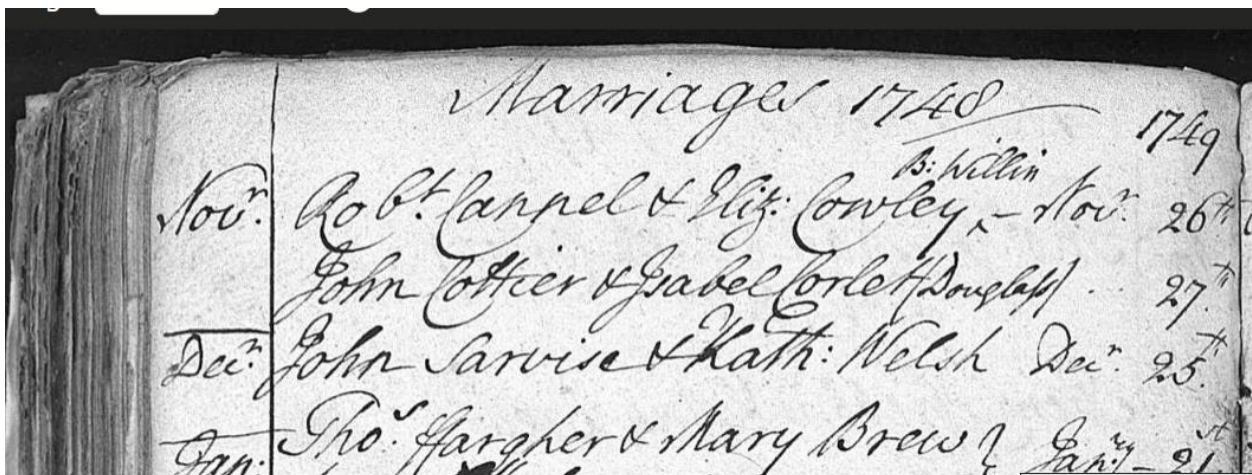 Marriages 1748
1749
B: Willin
Novr. Robt. Cannel & Eliz: Cowley, - Novr. 26th
John Cottier & Isabel Corlet (Douglass) .. 27th
Decr. John Sarvise & Kath: Welsh Decr. 25th
Jan: Thos. ffargher & Mary Brew } Janry - 21st